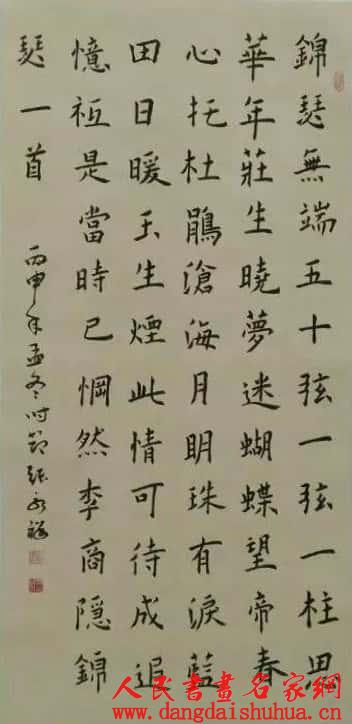 錦瑟無端五十弦一弦一柱思
華年莊生曉夢迷蝴蝶望帝春
心托杜鵑滄海月明珠有淚藍
田日暖玉生煙此情可待成追
憶祇是當時已惘然李商隱錦
瑟一首
丙申年孟冬时节張永
人民書畫名家網
www.dangdaishuhua.com